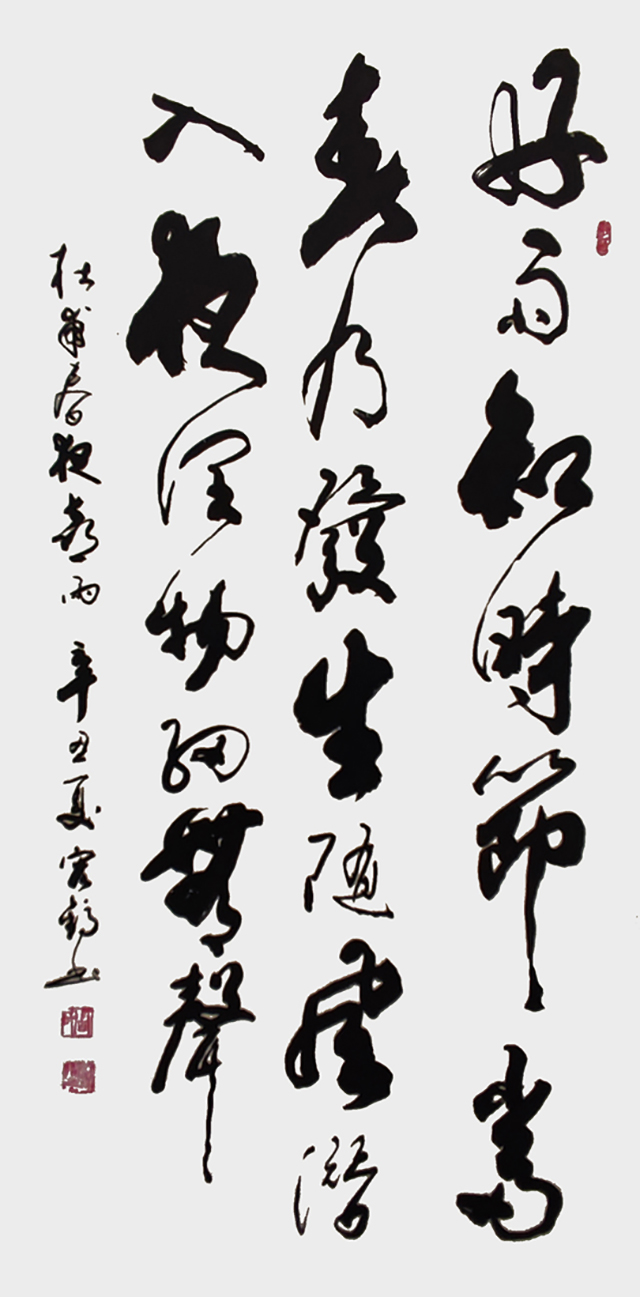 好雨知時節當
春乃發生隨風潛
入夜潤物細無聲
杜甫春夜喜雨 辛丑夏 鶴書